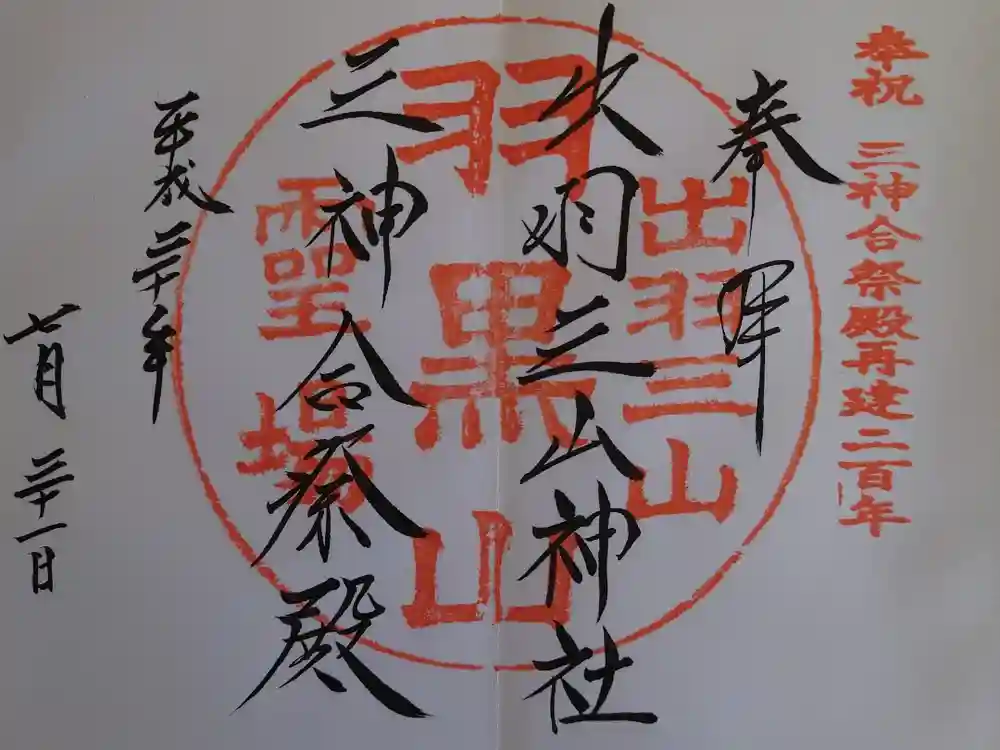 奉祝 三神合祭殿再建二百年
奉拝
出羽三山神社
三神合祭殿
平成三十年
七月三十一日
出羽三山
羽黒山
霊場